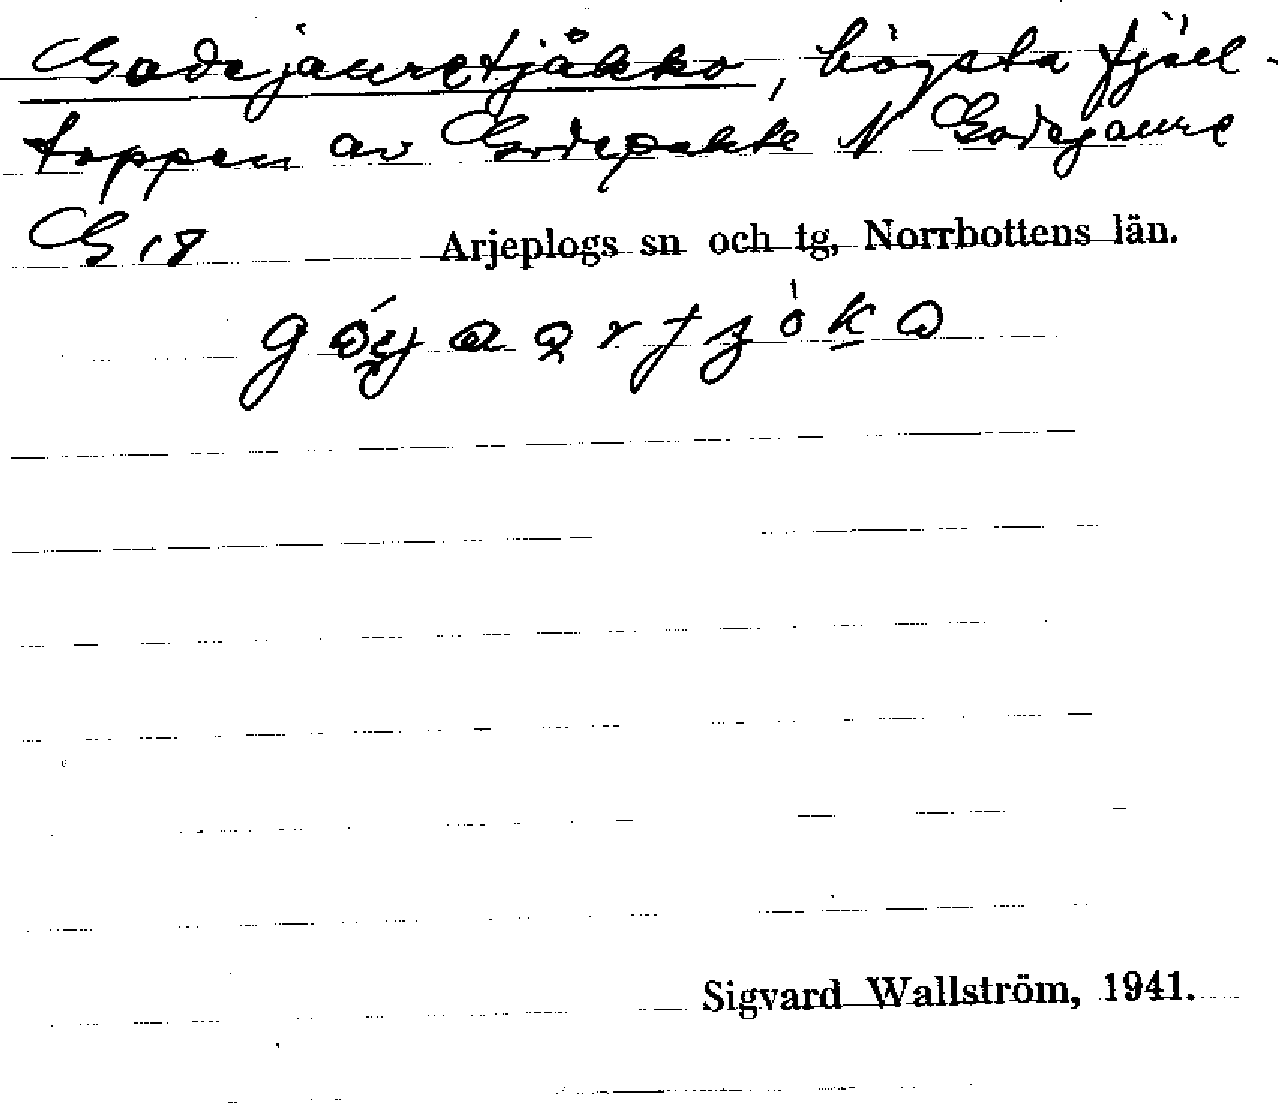 Godejauretjåkko, högsta fjäll-
toppen av Godepakte N Godejaure
G 18 Arjeplogs sn och tg, Norrbottens län.
Sigvard Wallström, 1941.